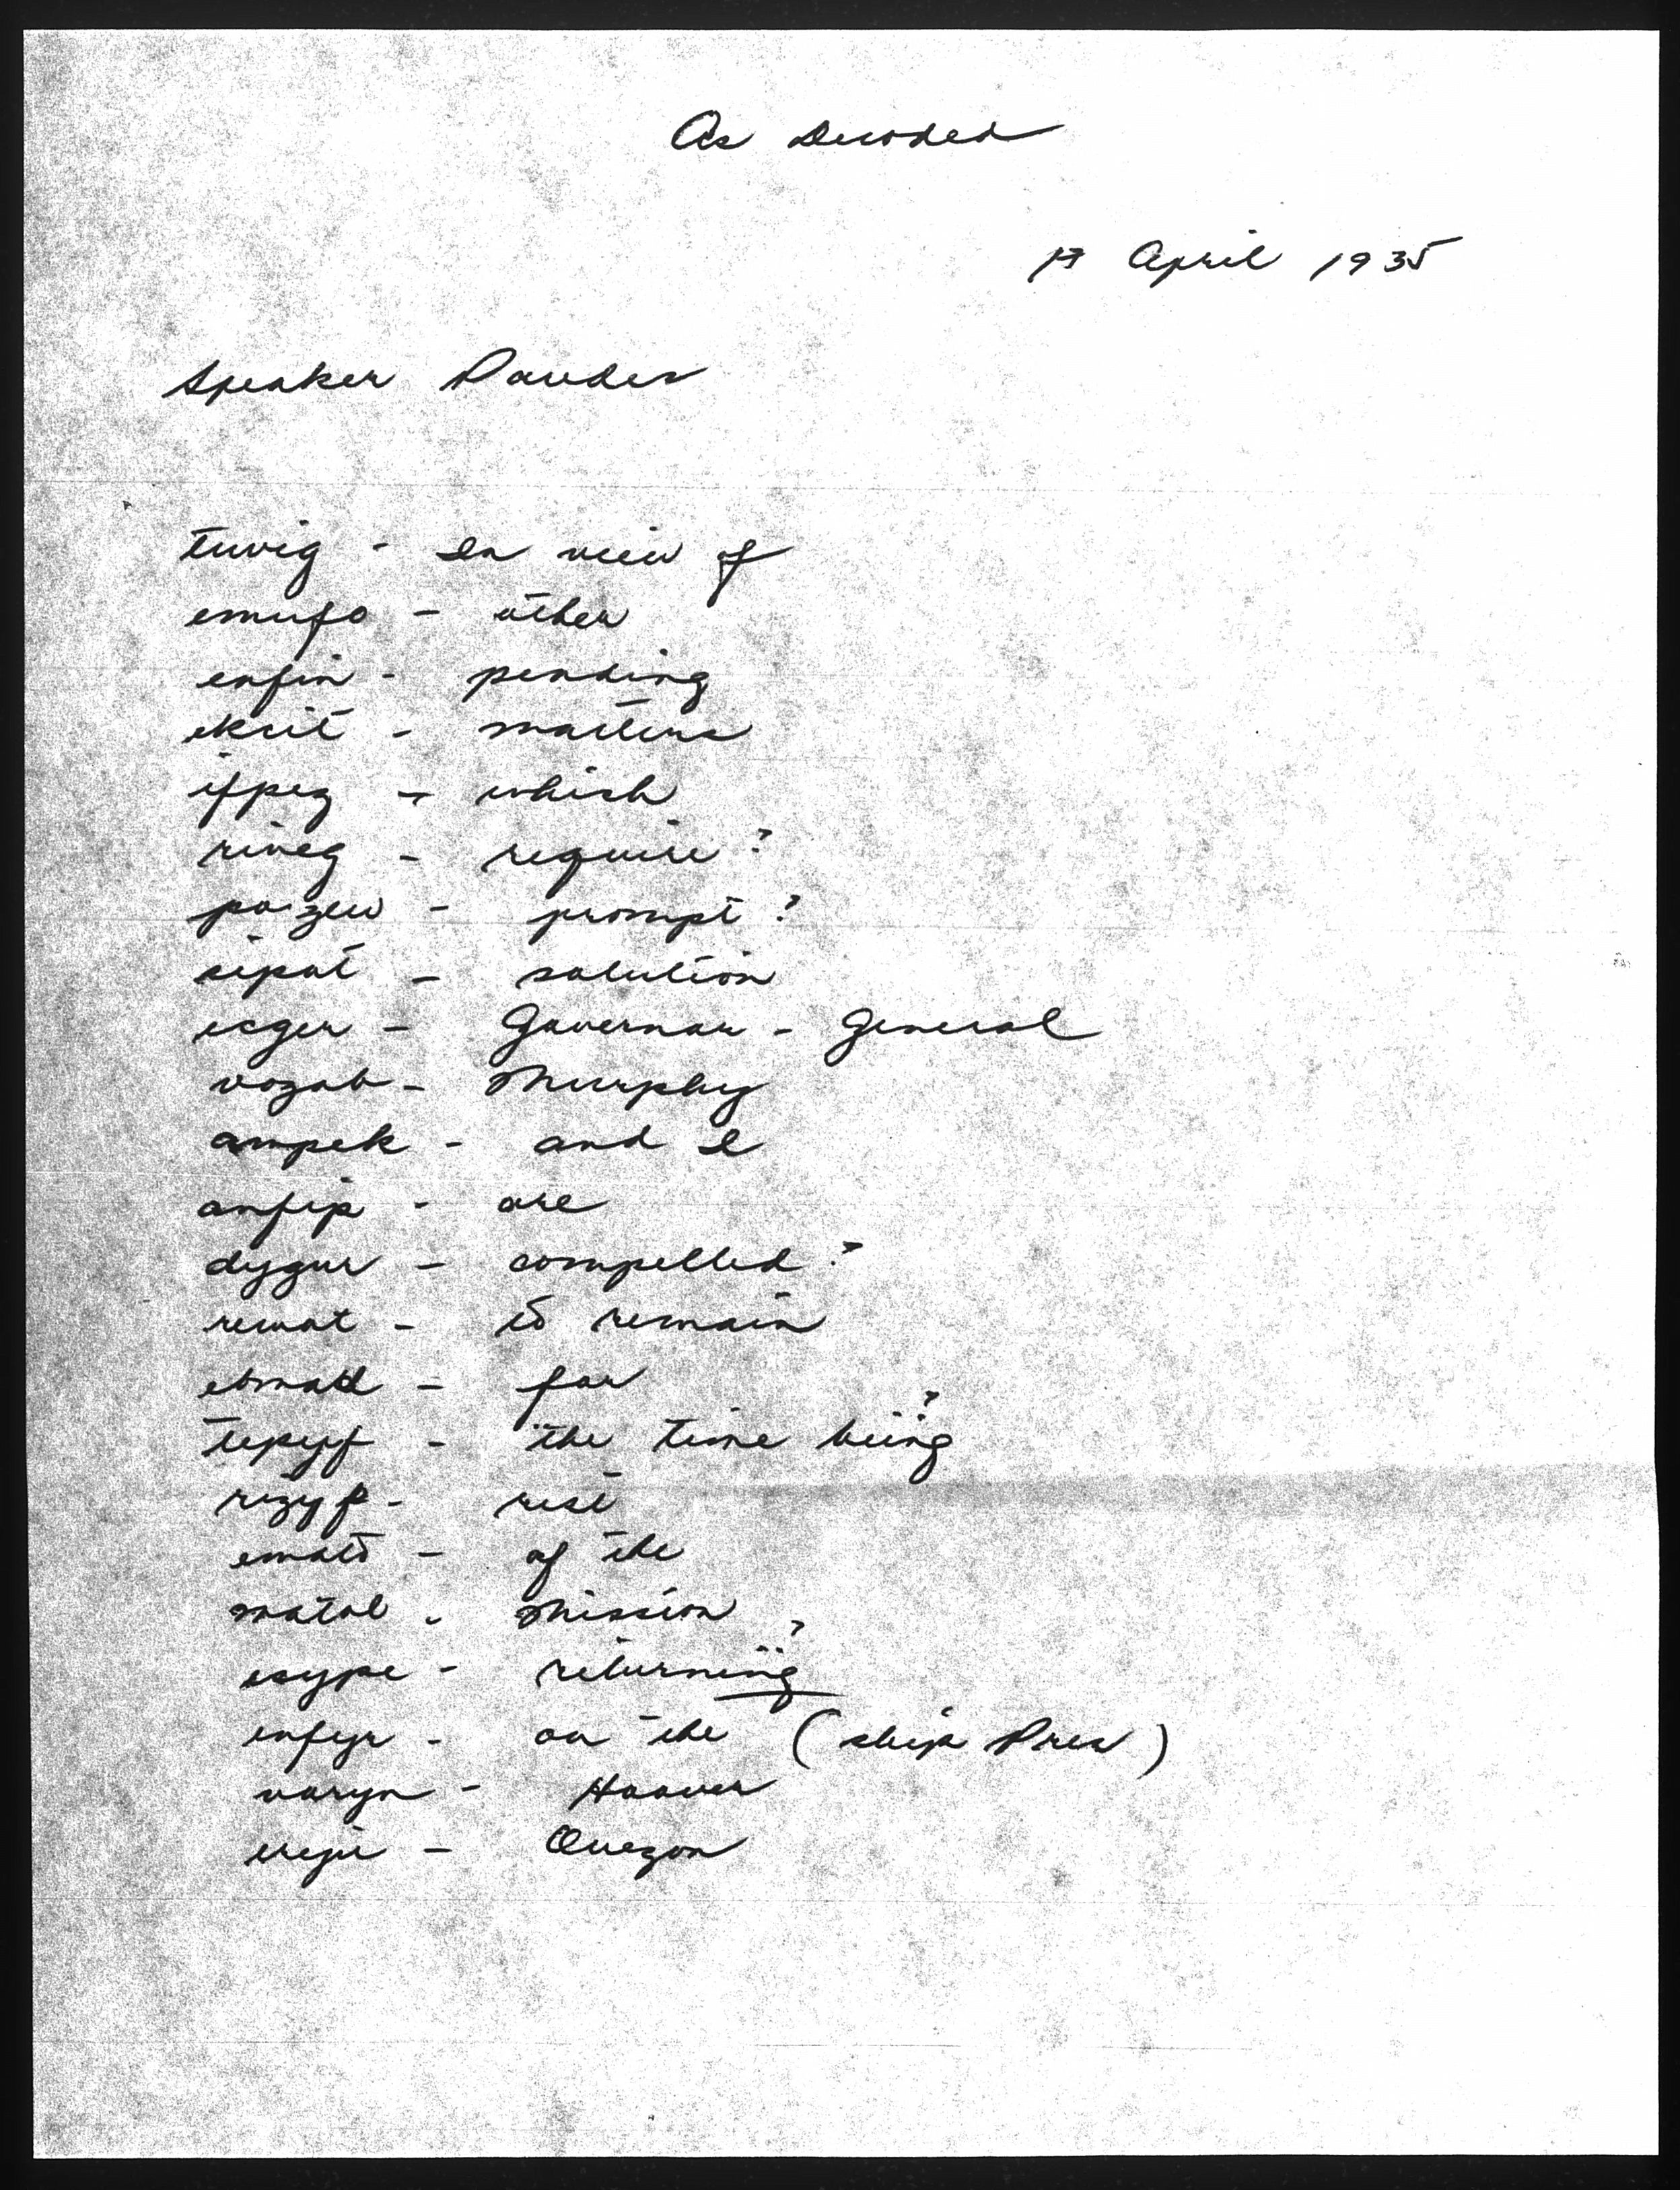 As Decoded
17 April 1935
Speaker Paredes
tuvig - In view of
emufo - other
enfin - pending
eksit - matters
ifpeg - which
riveg - require ?
pozew - prompt ?
sipat - solution
esger - Governor - General
vozab - Murphy
ampek - and I
anfip - are
dygur - compelled ?
rewat - to remain
ebmad - for
tepyf - "the time being ?
rizyf - rest
emato - of the
matol - Mission
esype - returning ?
enfyr - on the (ship Pres)
varyn - Hoover
Quezon